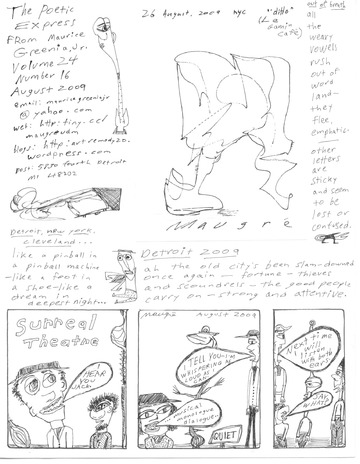 The Poetic
Express
From Maurice
Greenia, Jr.
Volume 24
Number 16
August 2009
email: mauricegreeniajr
@ yahoo.com
web: http: tiny.cc/
maugreudm
blogs: http: artremedy20.
wordpress.com
post: 5850 fourth Detroit
MI 48202
26 August, 2009 NYC
"ditto"
Maugré
out of breath
all
the
weary
vowels
rush
out of
word
land—
they
flee,
emphatic.
other
letters
are
sticky
and seem
to be
lost or
confused.
Detroit, New York,
Cleveland...
like a pinball in
a pinball machine
-like a foot in
a shoe-like a
dream in
deepest night...
Detroit 2009
ah the old city's been slam-downed
once again — fortune — thieves
and scoundrels — the good people
carry on — strong and attentive.
Surreal
Theatre
HEAR
YOU
JACK!
Maugré
August 2009
TELL YOU-I'M
WHISPERING AS
LOUD AS I
QUIET
Next time
will
listen
with both
ears!